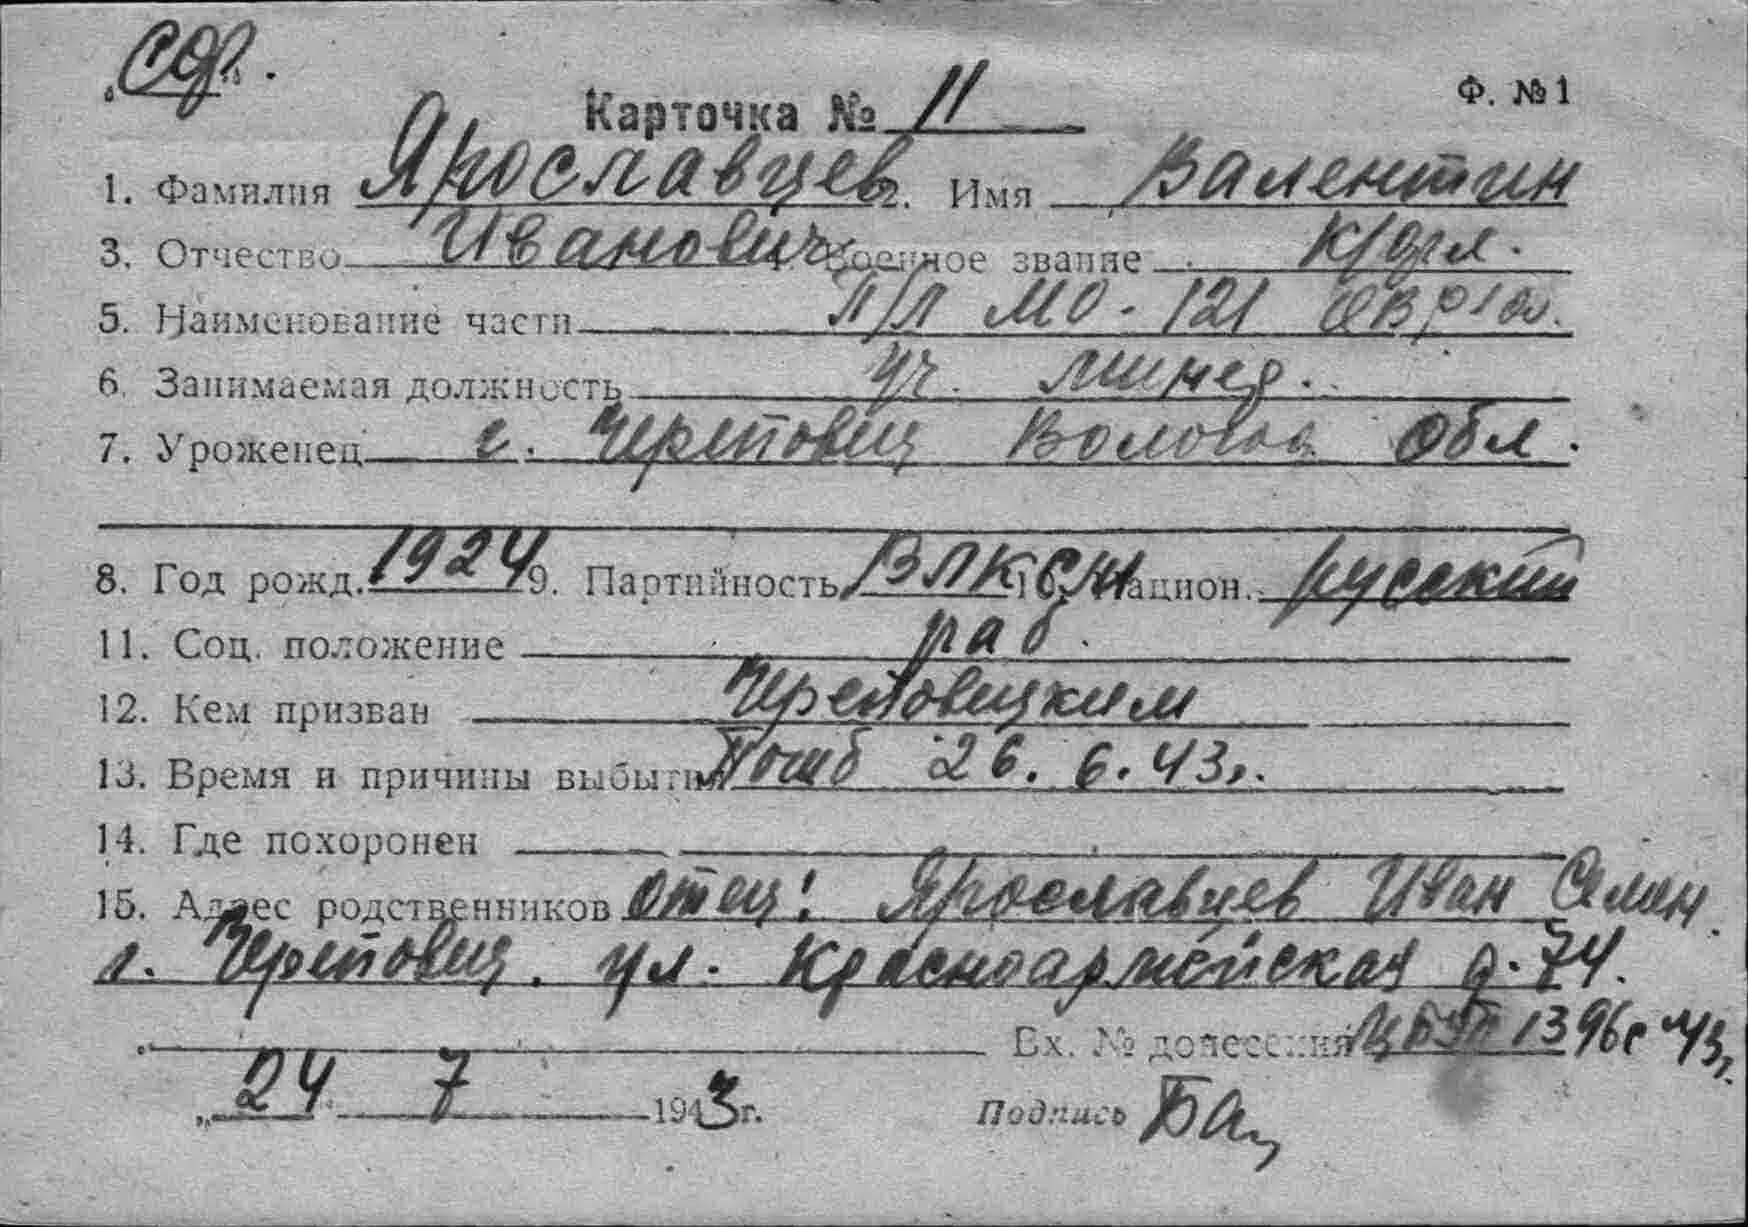 Ф. № 1
Карточка № 11
1. Фамилия Ярославцев 2. Имя Валентин
3. Отчество Иванович Военное звание к/фл.
5. Наименование части п/л МО-121 ОВР
6. Занимаемая должность уч. минер.
7. Уроженец г. Череповец Волого обл.
8. Год рожд. 1924 9. Партийность ВЛКСМ Национ. русский
11. Соц. положение раб.
12. Кем призван Череповецким
13. Время и причины выбытия Погиб 26.6.43г.
14. Где похоронен
15. Адрес родственников отец: Ярославцев Иван Семен.
г. Череповец. ул. Красноармейская д. 74.
Вх. № донесения 1396с 43г.
„24 7 1943г. Подпись